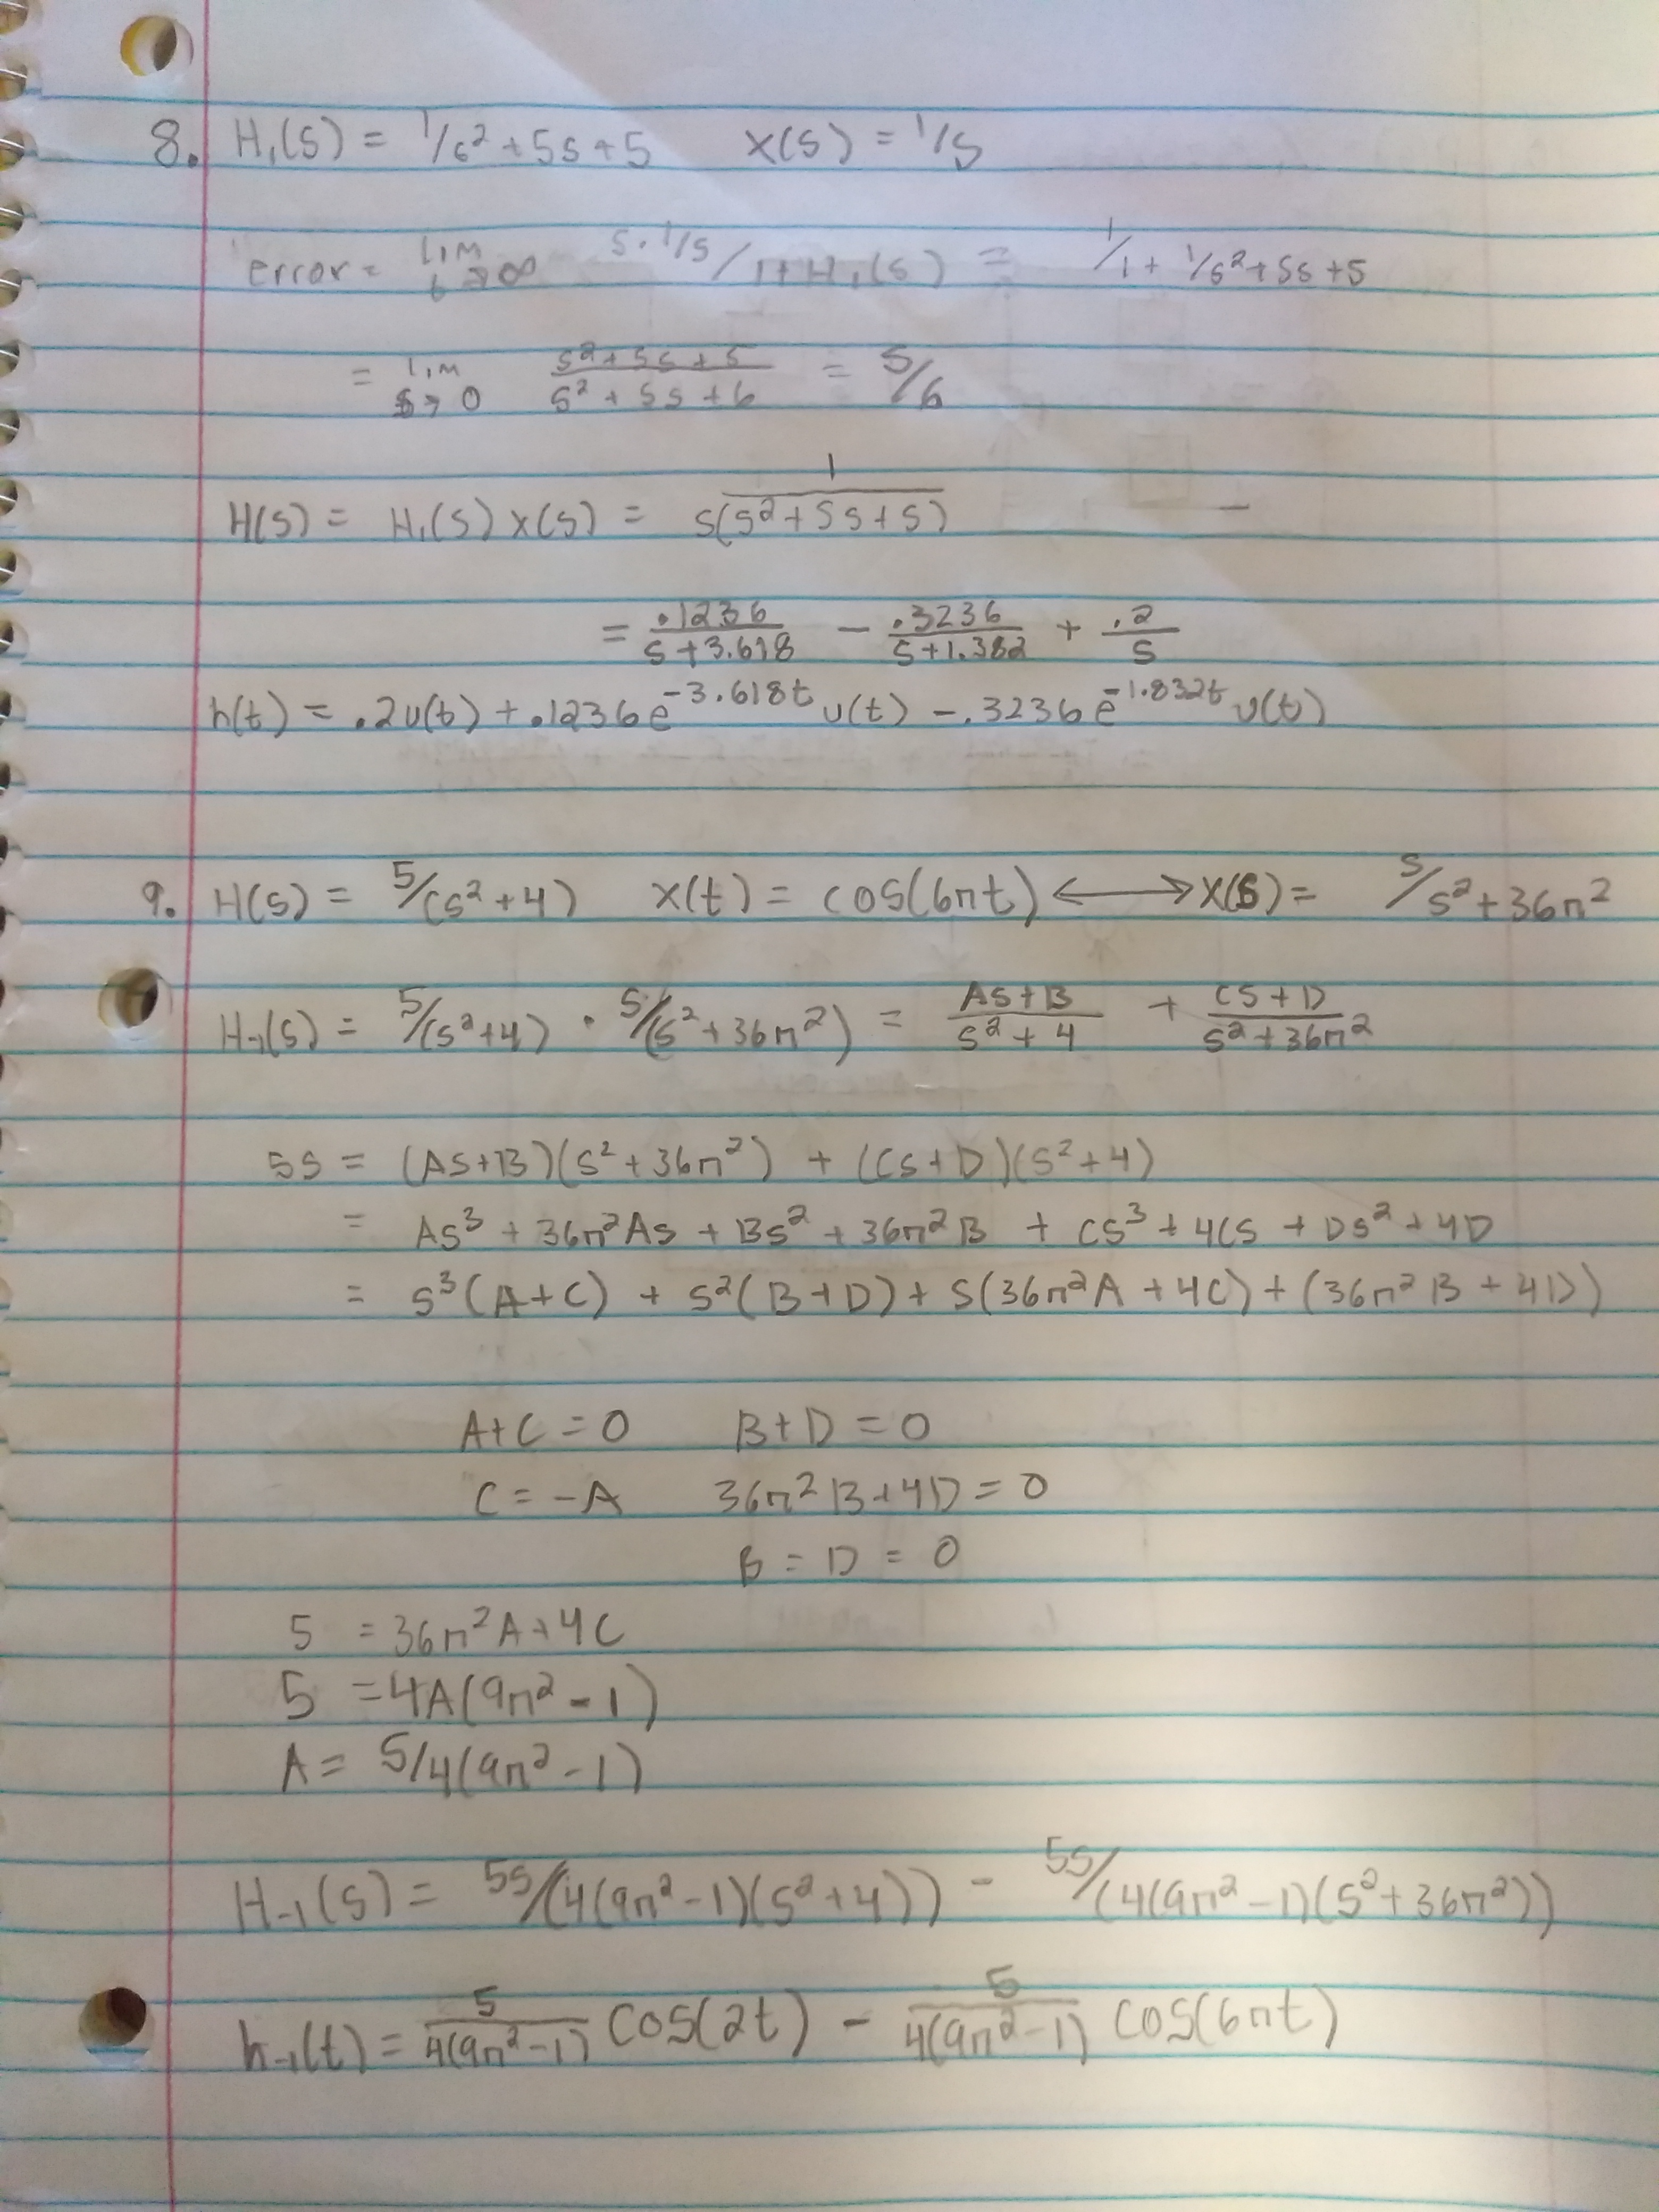 8. H₁(s) = 1/s² + 5s + 5 X(s) = 1/s
error = lim t→∞ s · 1/s / 1 + H₁(s) = 1/1 + 1/s² + 5s + 5
= lim s→0 s² + 5s + 5 / s² + 5s + 6 = 5/6
H(s) = H₁(s) X(s) = 1 / s(s² + 5s + 5)
= .1236 / s + 3.618 - .3236 / s + 1.382 + .2 / s
h(t) = .2u(t) + .1236e^-3.618t u(t) - .3236e^-1.832t u(t)
9. H(s) = 5/(s² + 4) x(t) = cos(6πt) ↔ X(s) = s/s² + 36π²
H₋₁(s) = 5/(s² + 4) · s/(s² + 36π²) = As + B / s² + 4 + Cs + D / s² + 36π²
5s = (As + B)(s² + 36π²) + (Cs + D)(s² + 4)
= As³ + 36π²As + Bs² + 36π²B + Cs³ + 4Cs + Ds² + 4D
= s³(A + C) + s²(B + D) + s(36π²A + 4C) + (36π²B + 4D)
A + C = 0 B + D = 0
C = -A 36π²B + 4D = 0
B = D = 0
5 = 36π²A + 4C
5 = 4A(9π² - 1)
A = 5/4(9π² - 1)
H₋₁(s) = 5s/(4(9π² - 1)(s² + 4)) - 5s/(4(9π² - 1)(s² + 36π²))
h₋₁(t) = 5 / 4(9π² - 1) cos(2t) - 5 / 4(9π² - 1) cos(6πt)